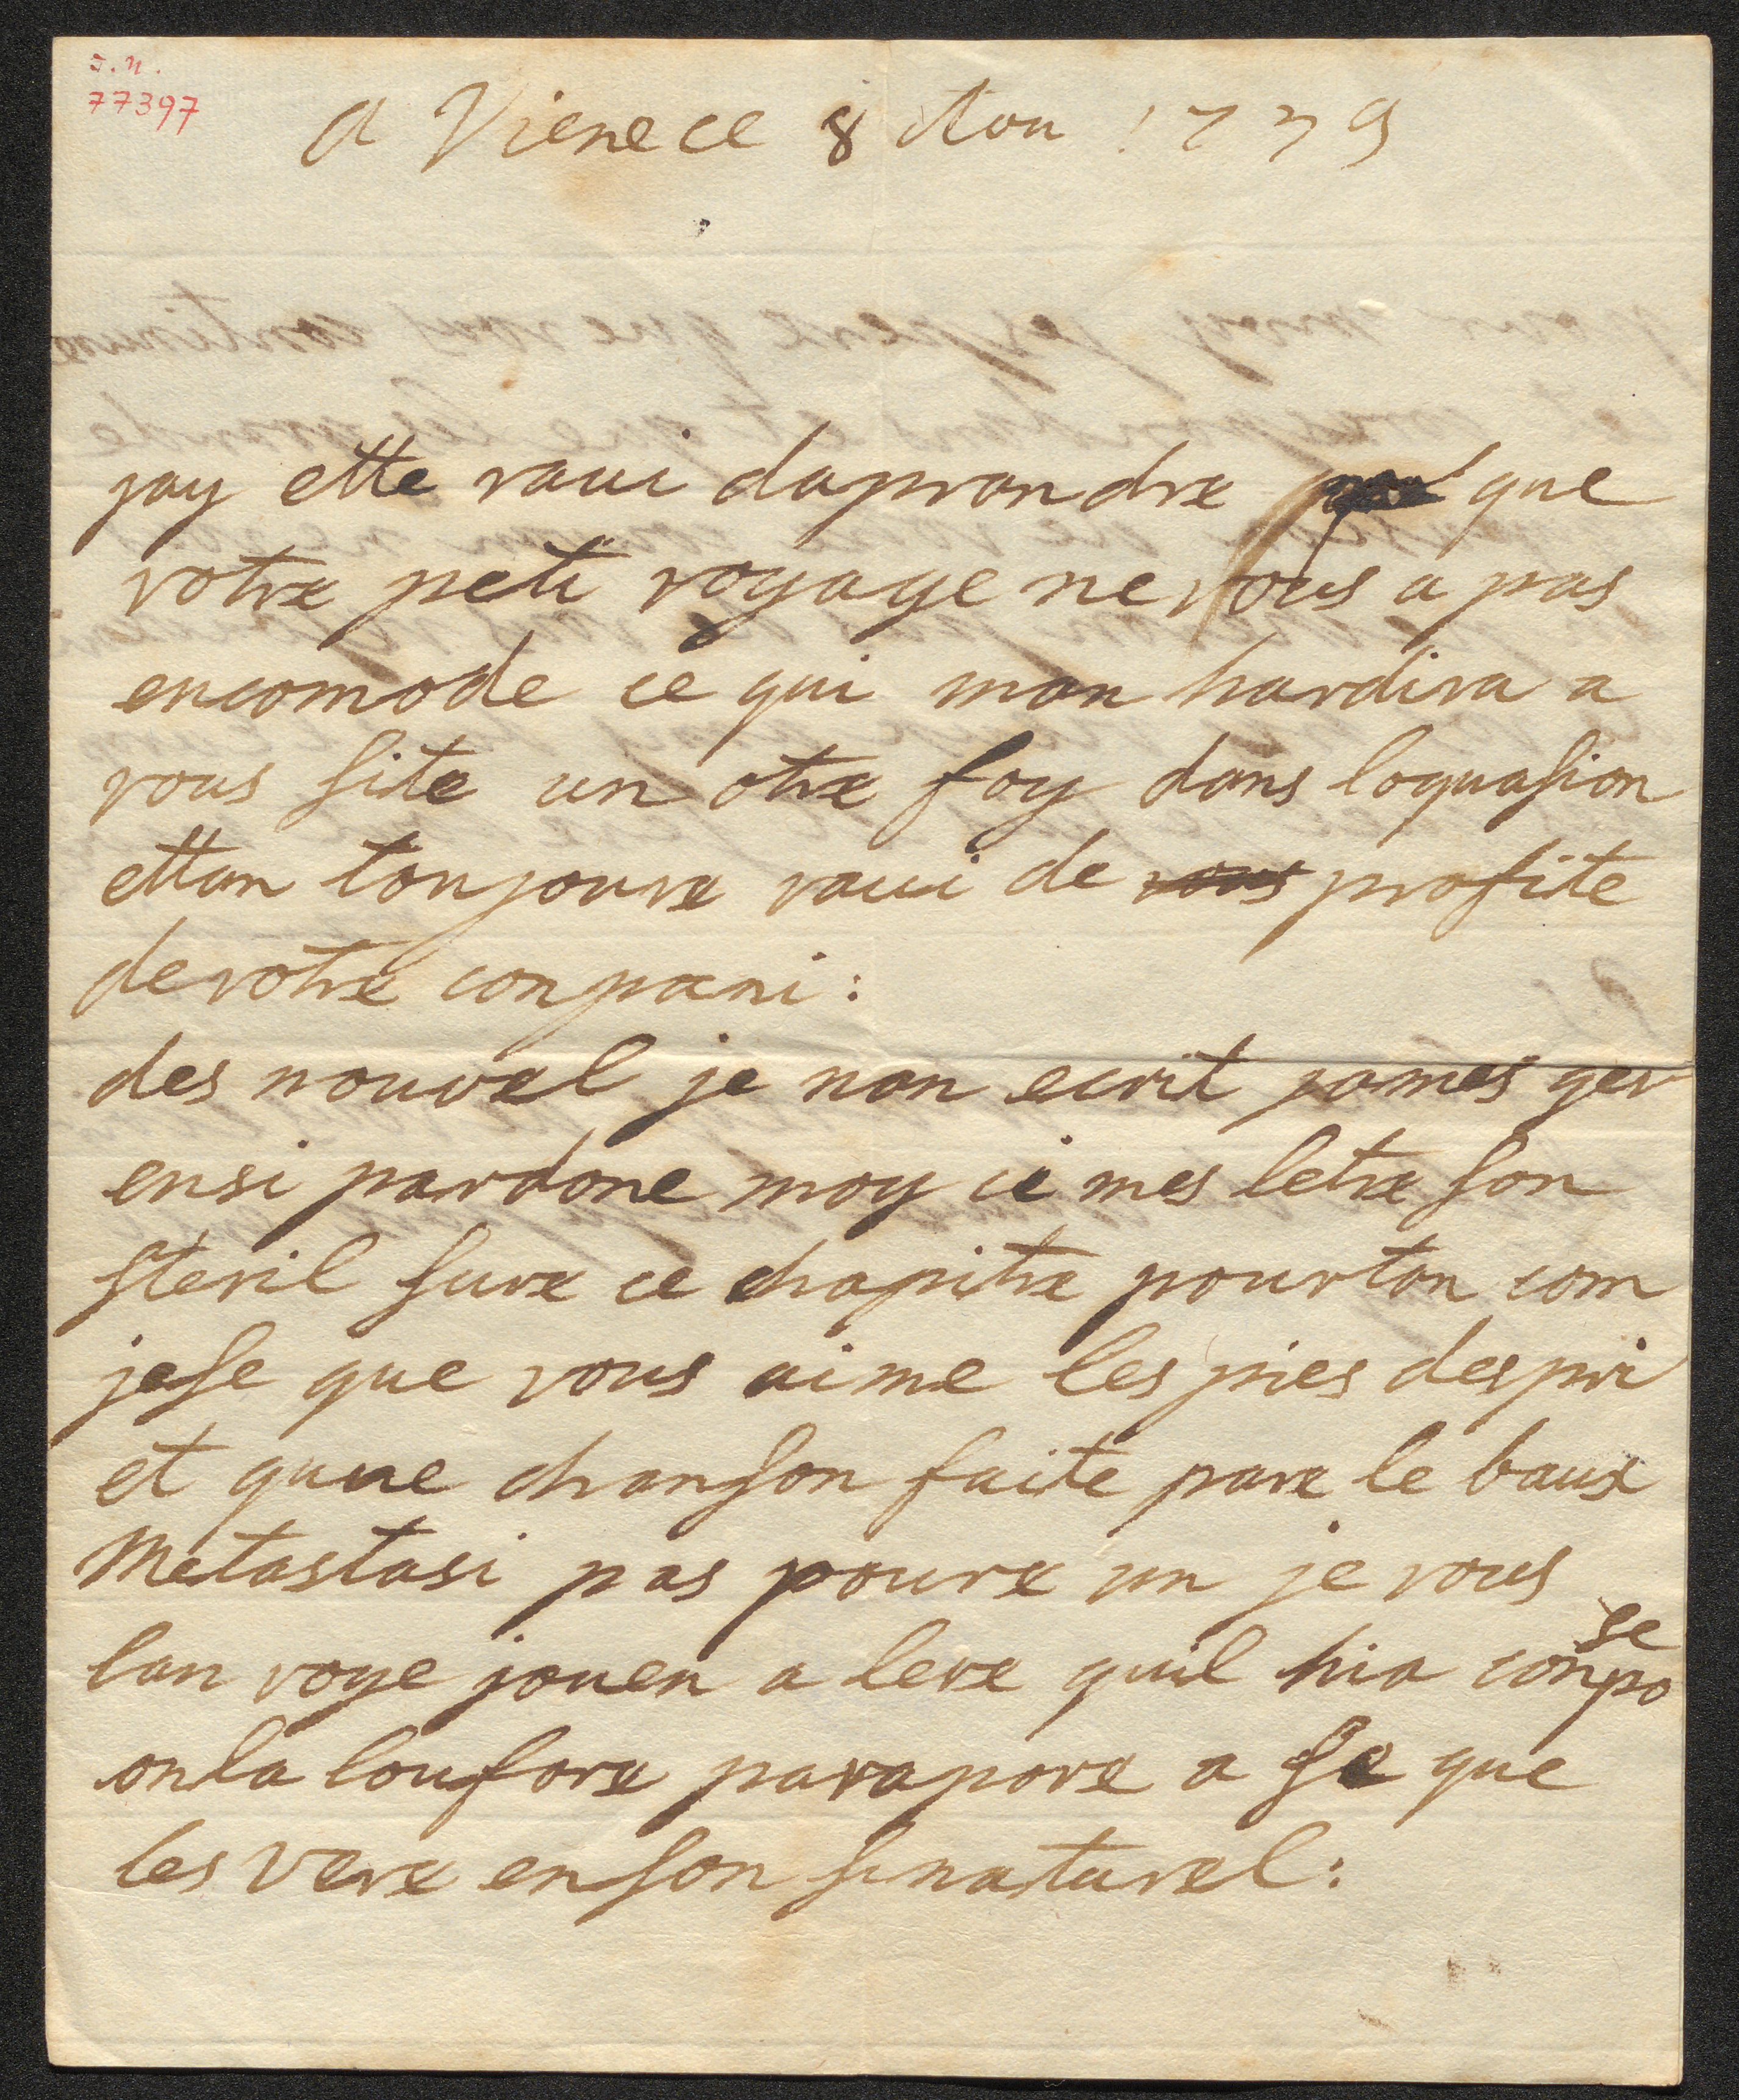 J.N.
77397
A Viene ce 8 Aou 1779
jay ette raui daprandre que
votre peti voyage ne vous a pas
encomode ce qui man hardira a
vous site un otre foy dans loquasion
ettan toujoure raui de vous profite
de votre conpani:
des nouvel je nan ecrit james ger
ensi pardone moy ci mes letre son
steril sure ce chapitre pourtan com
jese que vous aime les pies despri
et quue chanson faite pare le baux
Metastasi pas poure un je vous
lan voye jouen a lere quil hia conpo
se
onla loufore parapore a se que
les vere enson sinaturel: